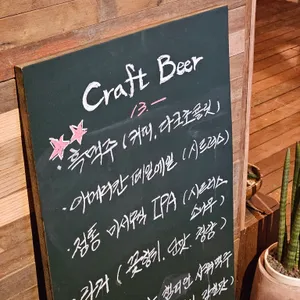 Craft Beer
13-
· 흑맥주 (커피, 다크초콜릿)
· 아메리칸 페일에일 (시트러스)
· 정통 미서부식 IPA (시트러스,
소나무)
· 라거 (꽃향기, 단맛, 청량)